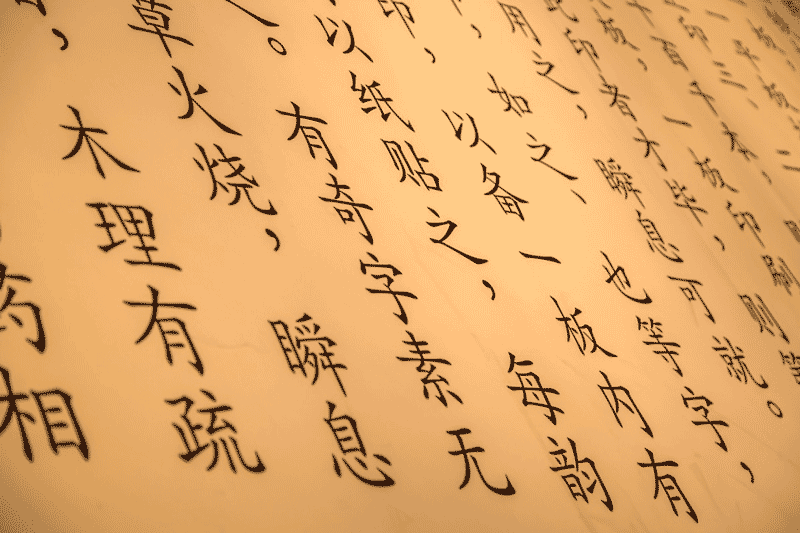 三
十百千本，
板，一板印刷
印者才毕，则第
用之，瞬息可就。
如之、也等字，
印，以备一板内有
以纸贴之，每韵
。有奇字素无
草火烧，瞬息
，木理有疏
药相